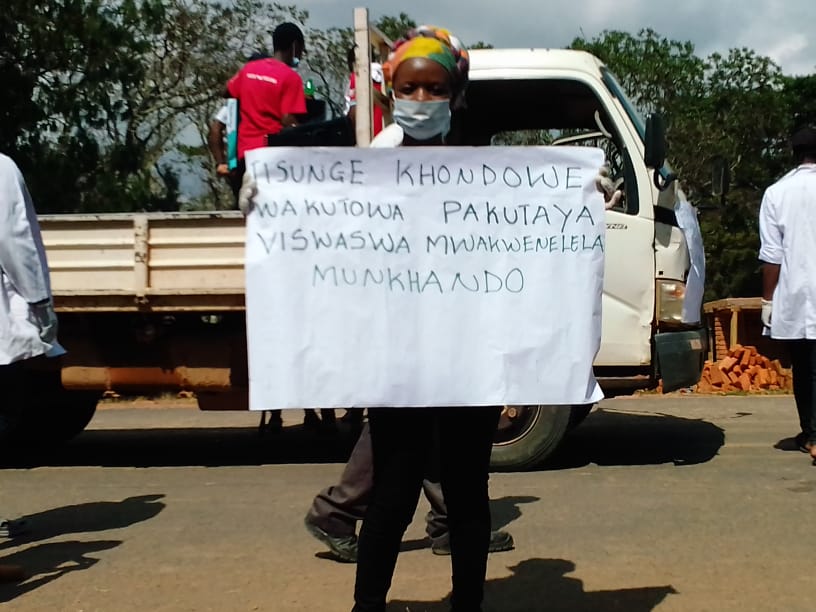 TISUNGE KHONDOWE
WAKUTOWA PAKUTAYA
VISWASWA MWAKWENELELA
MUNKHANDO